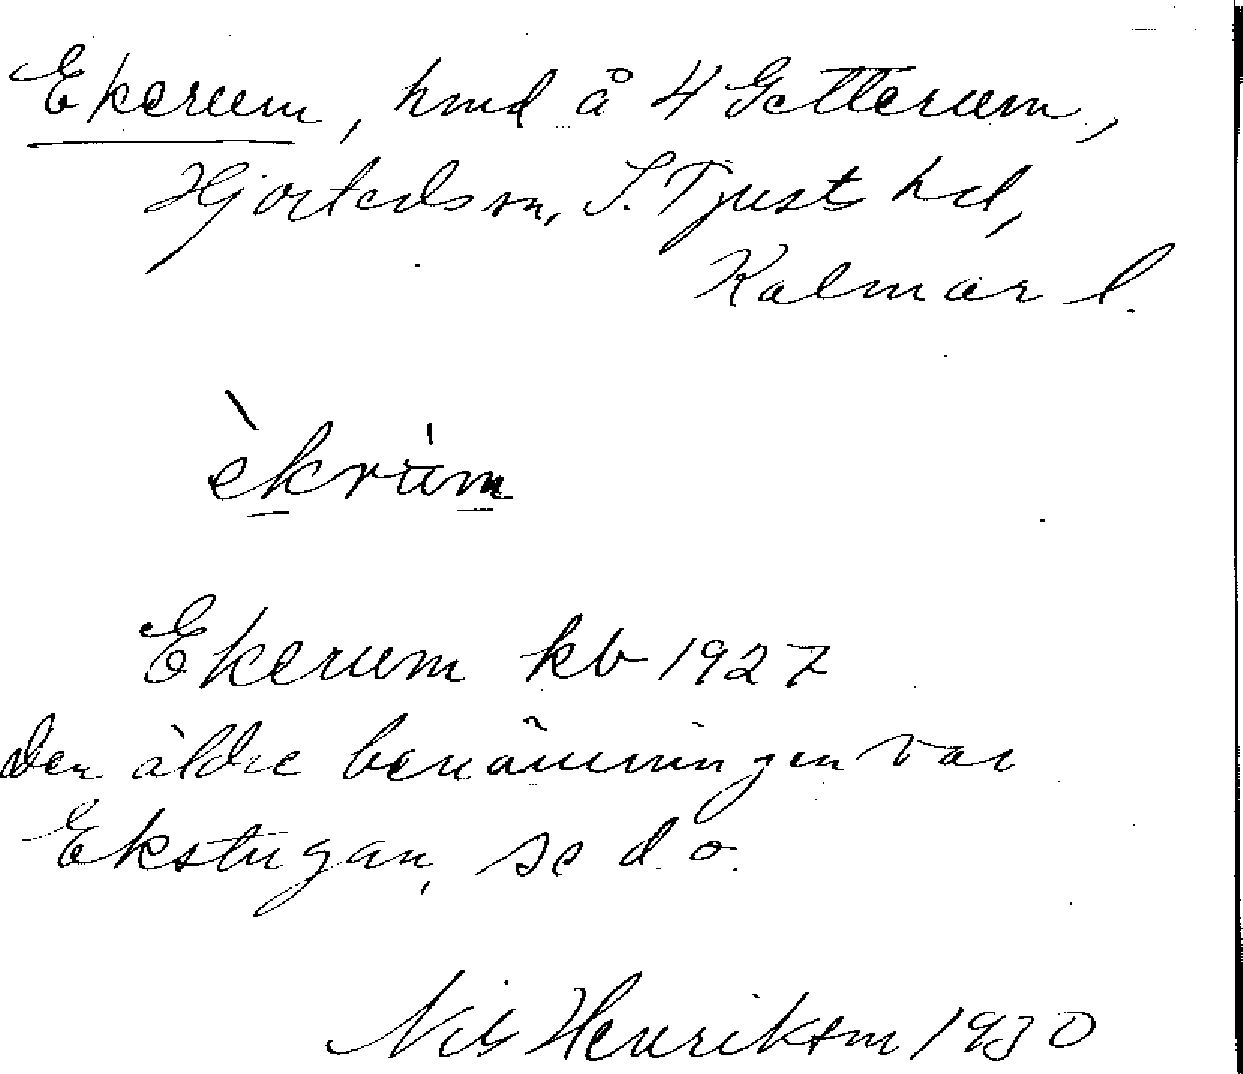 Ekerum, hmd å 4 Getterum,
Hjorteds sn, S. Tjusts hd,
Kalmar l.
èkrùm
Ekerum kb 1927
Den äldre benämningen var
Ekstugan, se d. o.
Nils Henrikson 1930